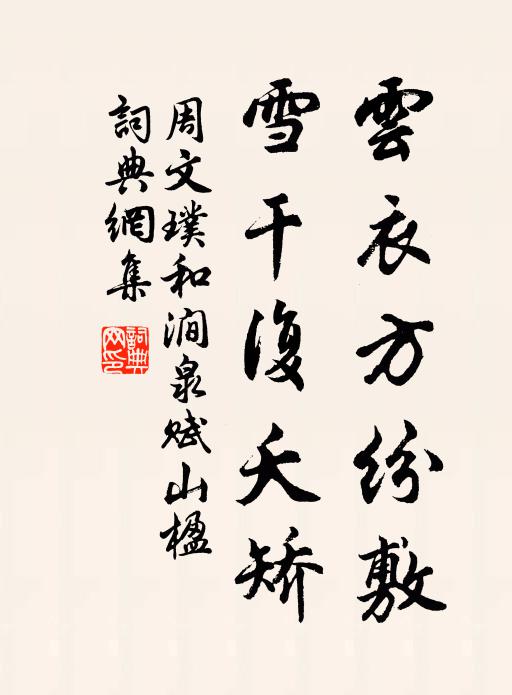 雲衣方紛敷
雪干復夭矯
周文璞和澗泉賦山櫑
詞典網集
詞典網印